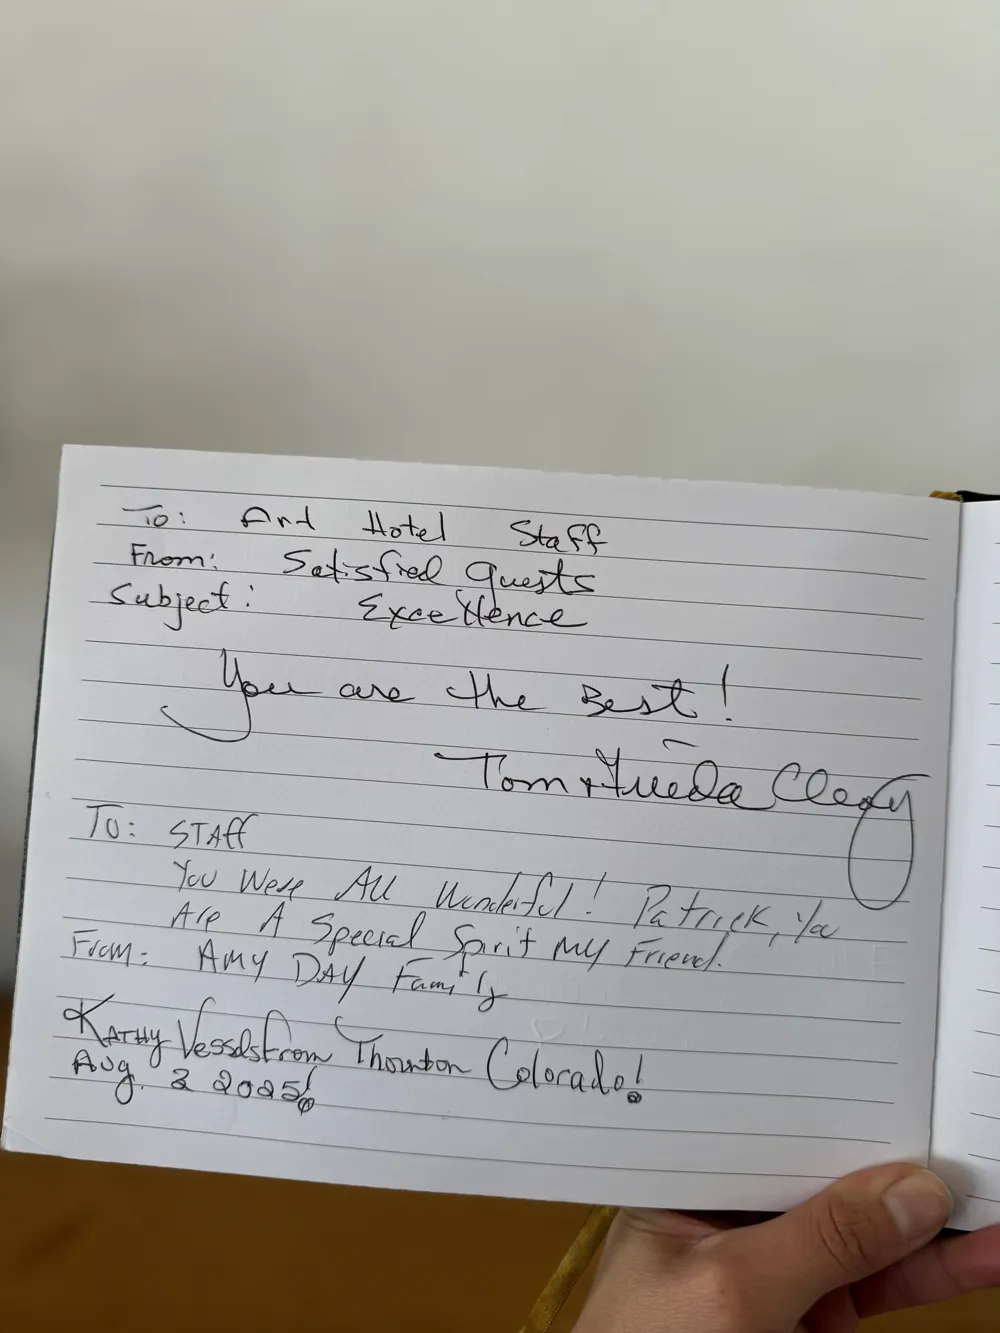 To: Art Hotel Staff
From: Satisfied guests
Subject: Excellence
You are the Best!
Tom + Clery
To: STAff
You Were All Wonderful! Patrick, You
Are A Special Spirit My Friend.
From: Amy DAY Family
KATHY Vessels From Thornton Colorado!
Aug. 2 2025!